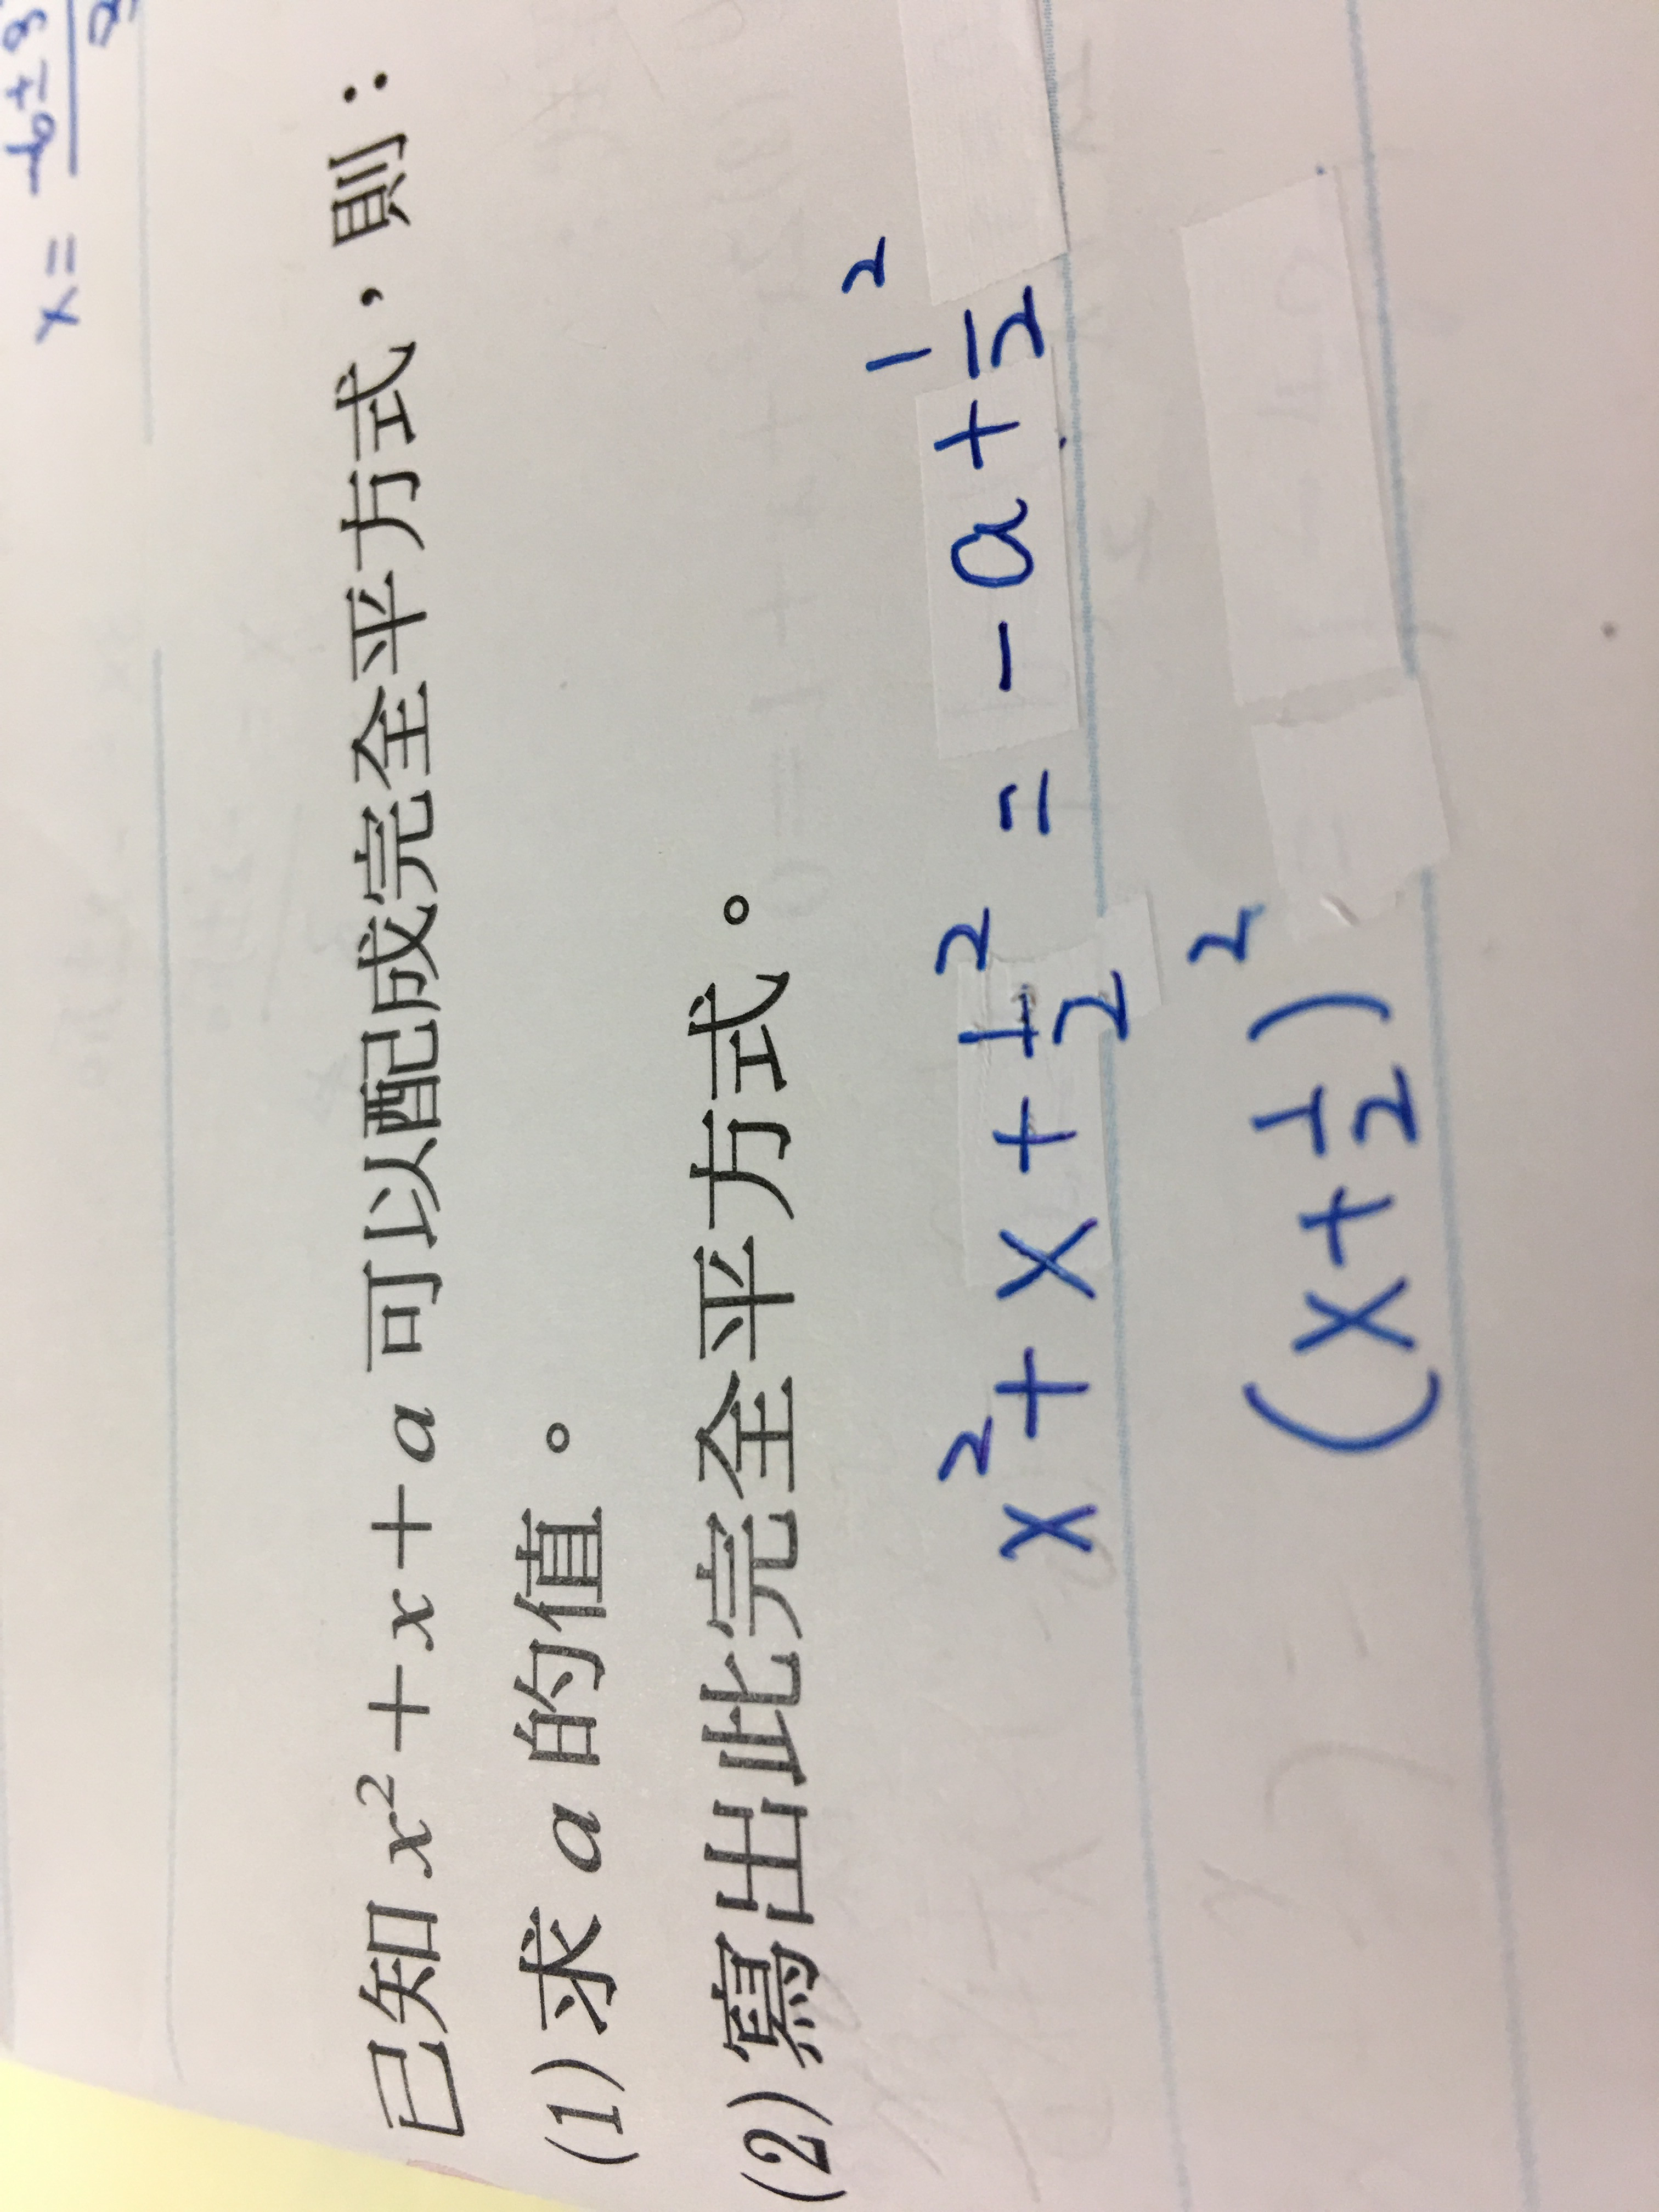 x =
已知 x² + x + a 可以配成完全平方式，則：
(1) 求 a 的值。
(2) 寫出此完全平方式。
x² + x + 1/2² = - a + 1/2²
(x + 1/2)²